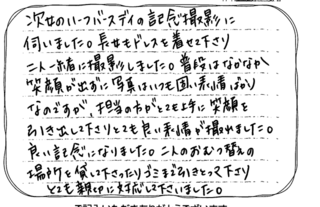 次女のハーフバースデイの記念撮影に
伺いました。長女もドレスを着せて下さり
二人一緒に撮影しました。普段はなかなか
笑顔が出ずに写真はいつも固い表情ばかり
なのですが、担当の方がとても上手に笑顔を
引き出して下さりとても良い表情が撮れました。
良い記念になりました。二人のおむつ替えの
場所を貸して下さったりゴミまで引きとって下さり
とても親切に対応して下さいました。